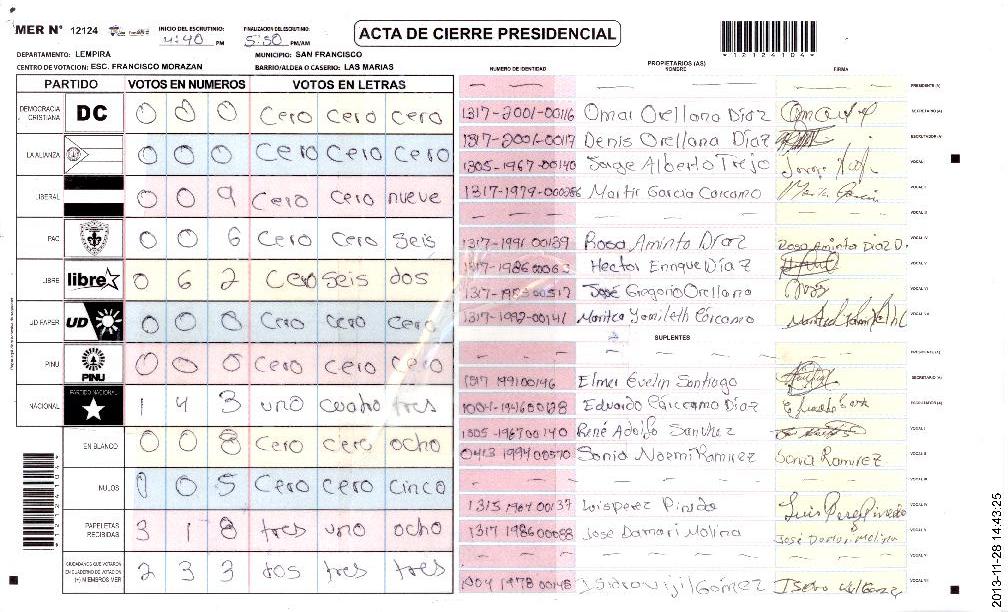 MER N° 12124
INICIO DEL ESCRUTINIO:
4:40 PM
FINALIZACION DEL ESCRUTINIO:
5:50 PM/AM
ACTA DE CIERRE PRESIDENCIAL
*12124104*
DEPARTAMENTO: LEMPIRA
MUNICIPIO: SAN FRANCISCO
CENTRO DE VOTACION: ESC. FRANCISCO MORAZAN
BARRIO/ALDEA O CASERIO: LAS MARIAS
PARTIDO VOTOS EN NUMEROS VOTOS EN LETRAS
DEMOCRACIA CRISTIANA DC 0 0 0 cero cero cero
LA ALIANZA 0 0 0 cero cero cero
LIBERAL 0 0 9 cero cero nueve
PAC 0 0 6 cero cero seis
LIBRE libre 0 6 2 cero seis dos
UD FAPER UD 0 0 0 cero cero cero
PINU PINU 0 0 0 cero cero cero
NACIONAL PARTIDO NACIONAL 1 4 3 uno cuatro tres
EN BLANCO 0 0 8 cero cero ocho
NULOS 0 0 5 cero cero cinco
PAPELETAS RECIBIDAS 3 1 8 tres uno ocho
CIUDADANOS QUE VOTARON EN CUADERNO DE VOTACION (+) MIEMBROS MER 2 3 3 dos tres tres
PROPIETARIOS (AS)
NUMERO DE IDENTIDAD NOMBRE FIRMA
— — — PRESIDENTE (A)
1317-2001-00116 Omar Orellana Díaz SECRETARIO (A)
1317-2001-00117 Denis Orellana Díaz ESCRUTADOR (A)
1305-1967-00140 Jorge Alberto Trejo VOCAL I
1317-1979-00086 Martir Garcia Carcamo VOCAL II
— — — VOCAL III
1317-1991 00139 Rosa Aminta Díaz Rosa Aminta Diaz D. VOCAL IV
Hector Enrique Díaz VOCAL V
José Gregorio Orellana VOCAL VI
1317-1992-00141 Maritza Yamileth Carcamo VOCAL VII
SUPLENTES
— — — PRESIDENTE (A)
1317 1991 00146 Elmer Evelin Santiago SECRETARIO (A)
Eduardo Cárcamo Díaz ESCRUTADOR (A)
1305-1967 00140 René Adolfo Sanchez VOCAL I
0413 1994 00570 Sonia Noemi Ramirez Sonia Ramirez VOCAL II
— — — VOCAL III
1315 1964 00137 Luis perez Pineda Luis Perez Pineda VOCAL IV
1317 1986 00088 José Damari Molina José Damari Molina VOCAL V
— — — VOCAL VI
1004 1978 00148 Isidro vijil Gómez VOCAL VII
*12124104*
2013-11-28 14:43:25